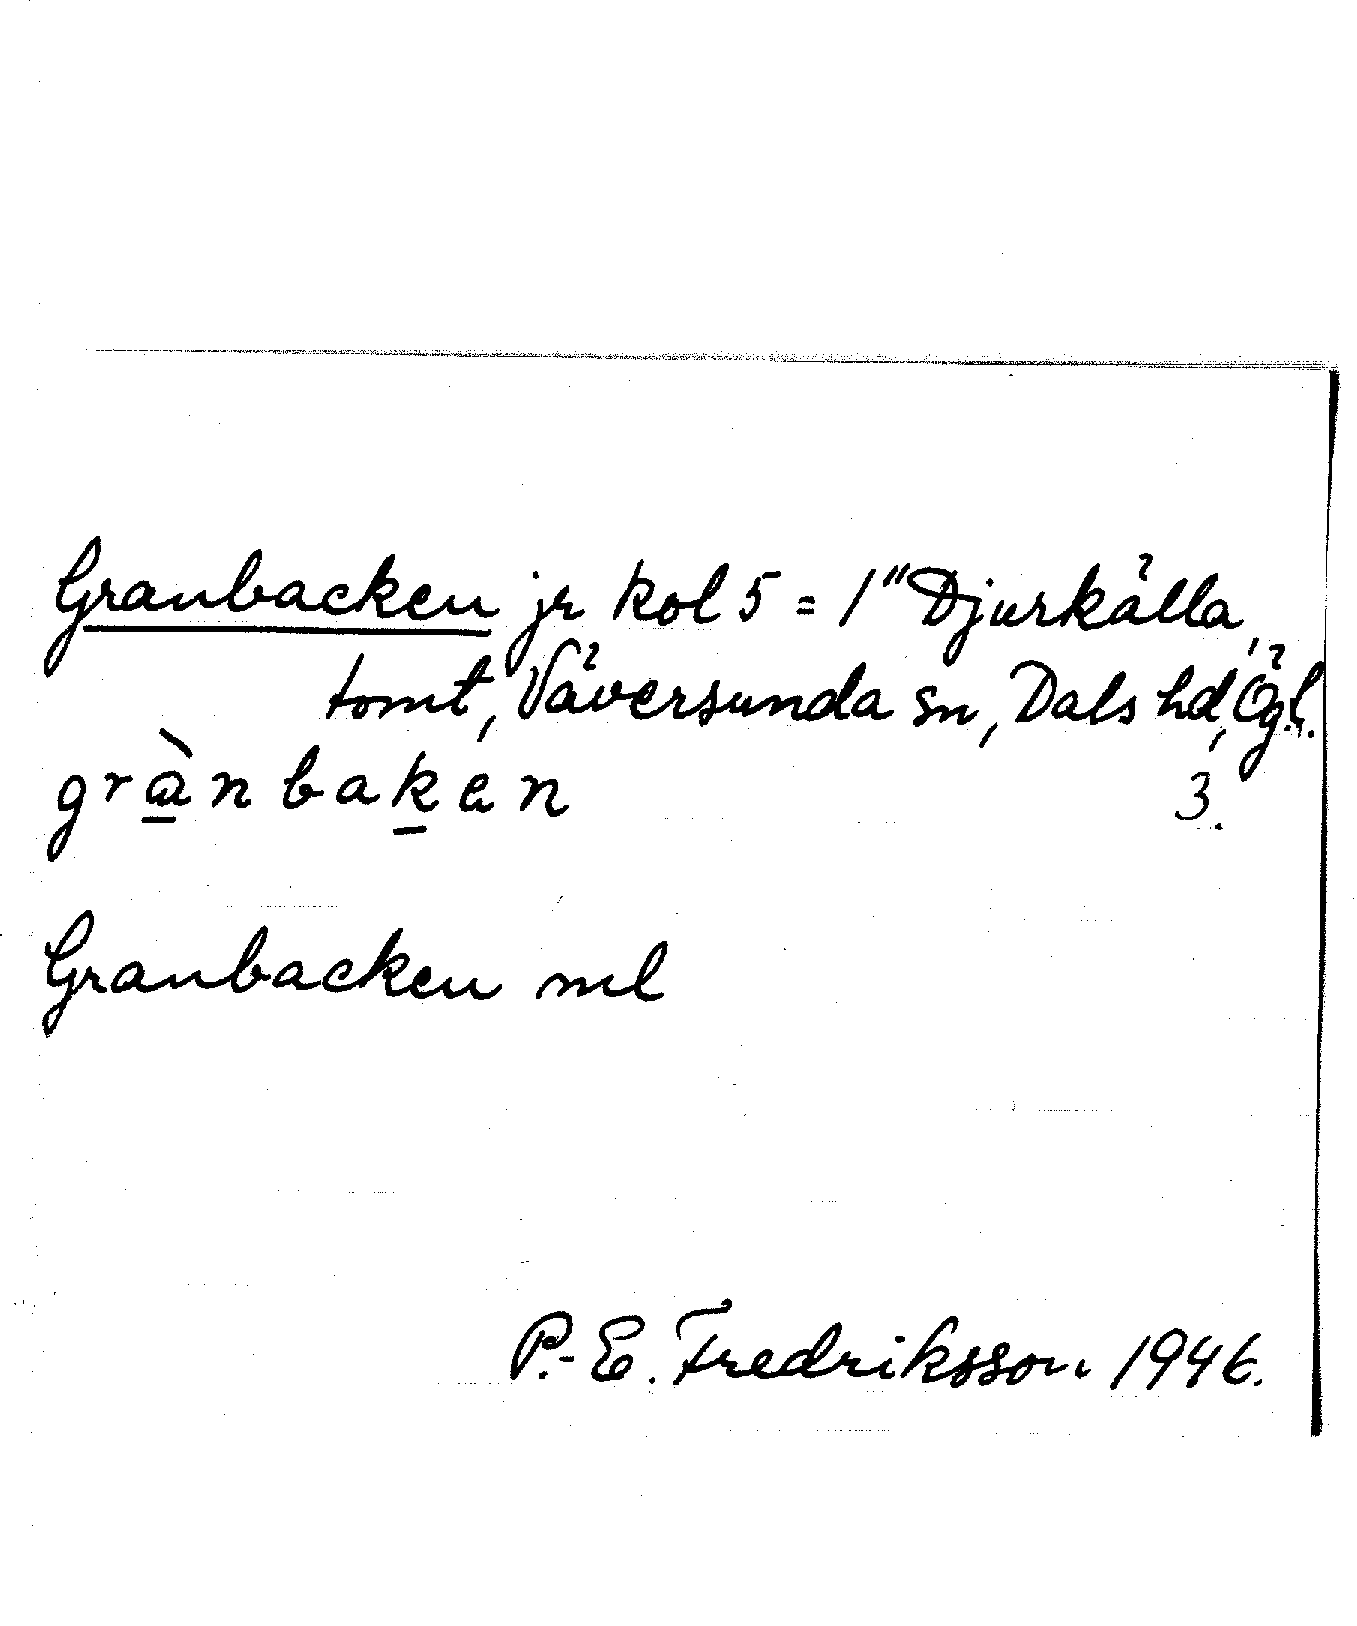 Granbacken jr kol 5 = 1" Djurkälla,
tomt, Väversunda sn, Dals hd, Ögl.
grànbaken 3.
Granbacken ml
P.-E. Fredriksson 1946.